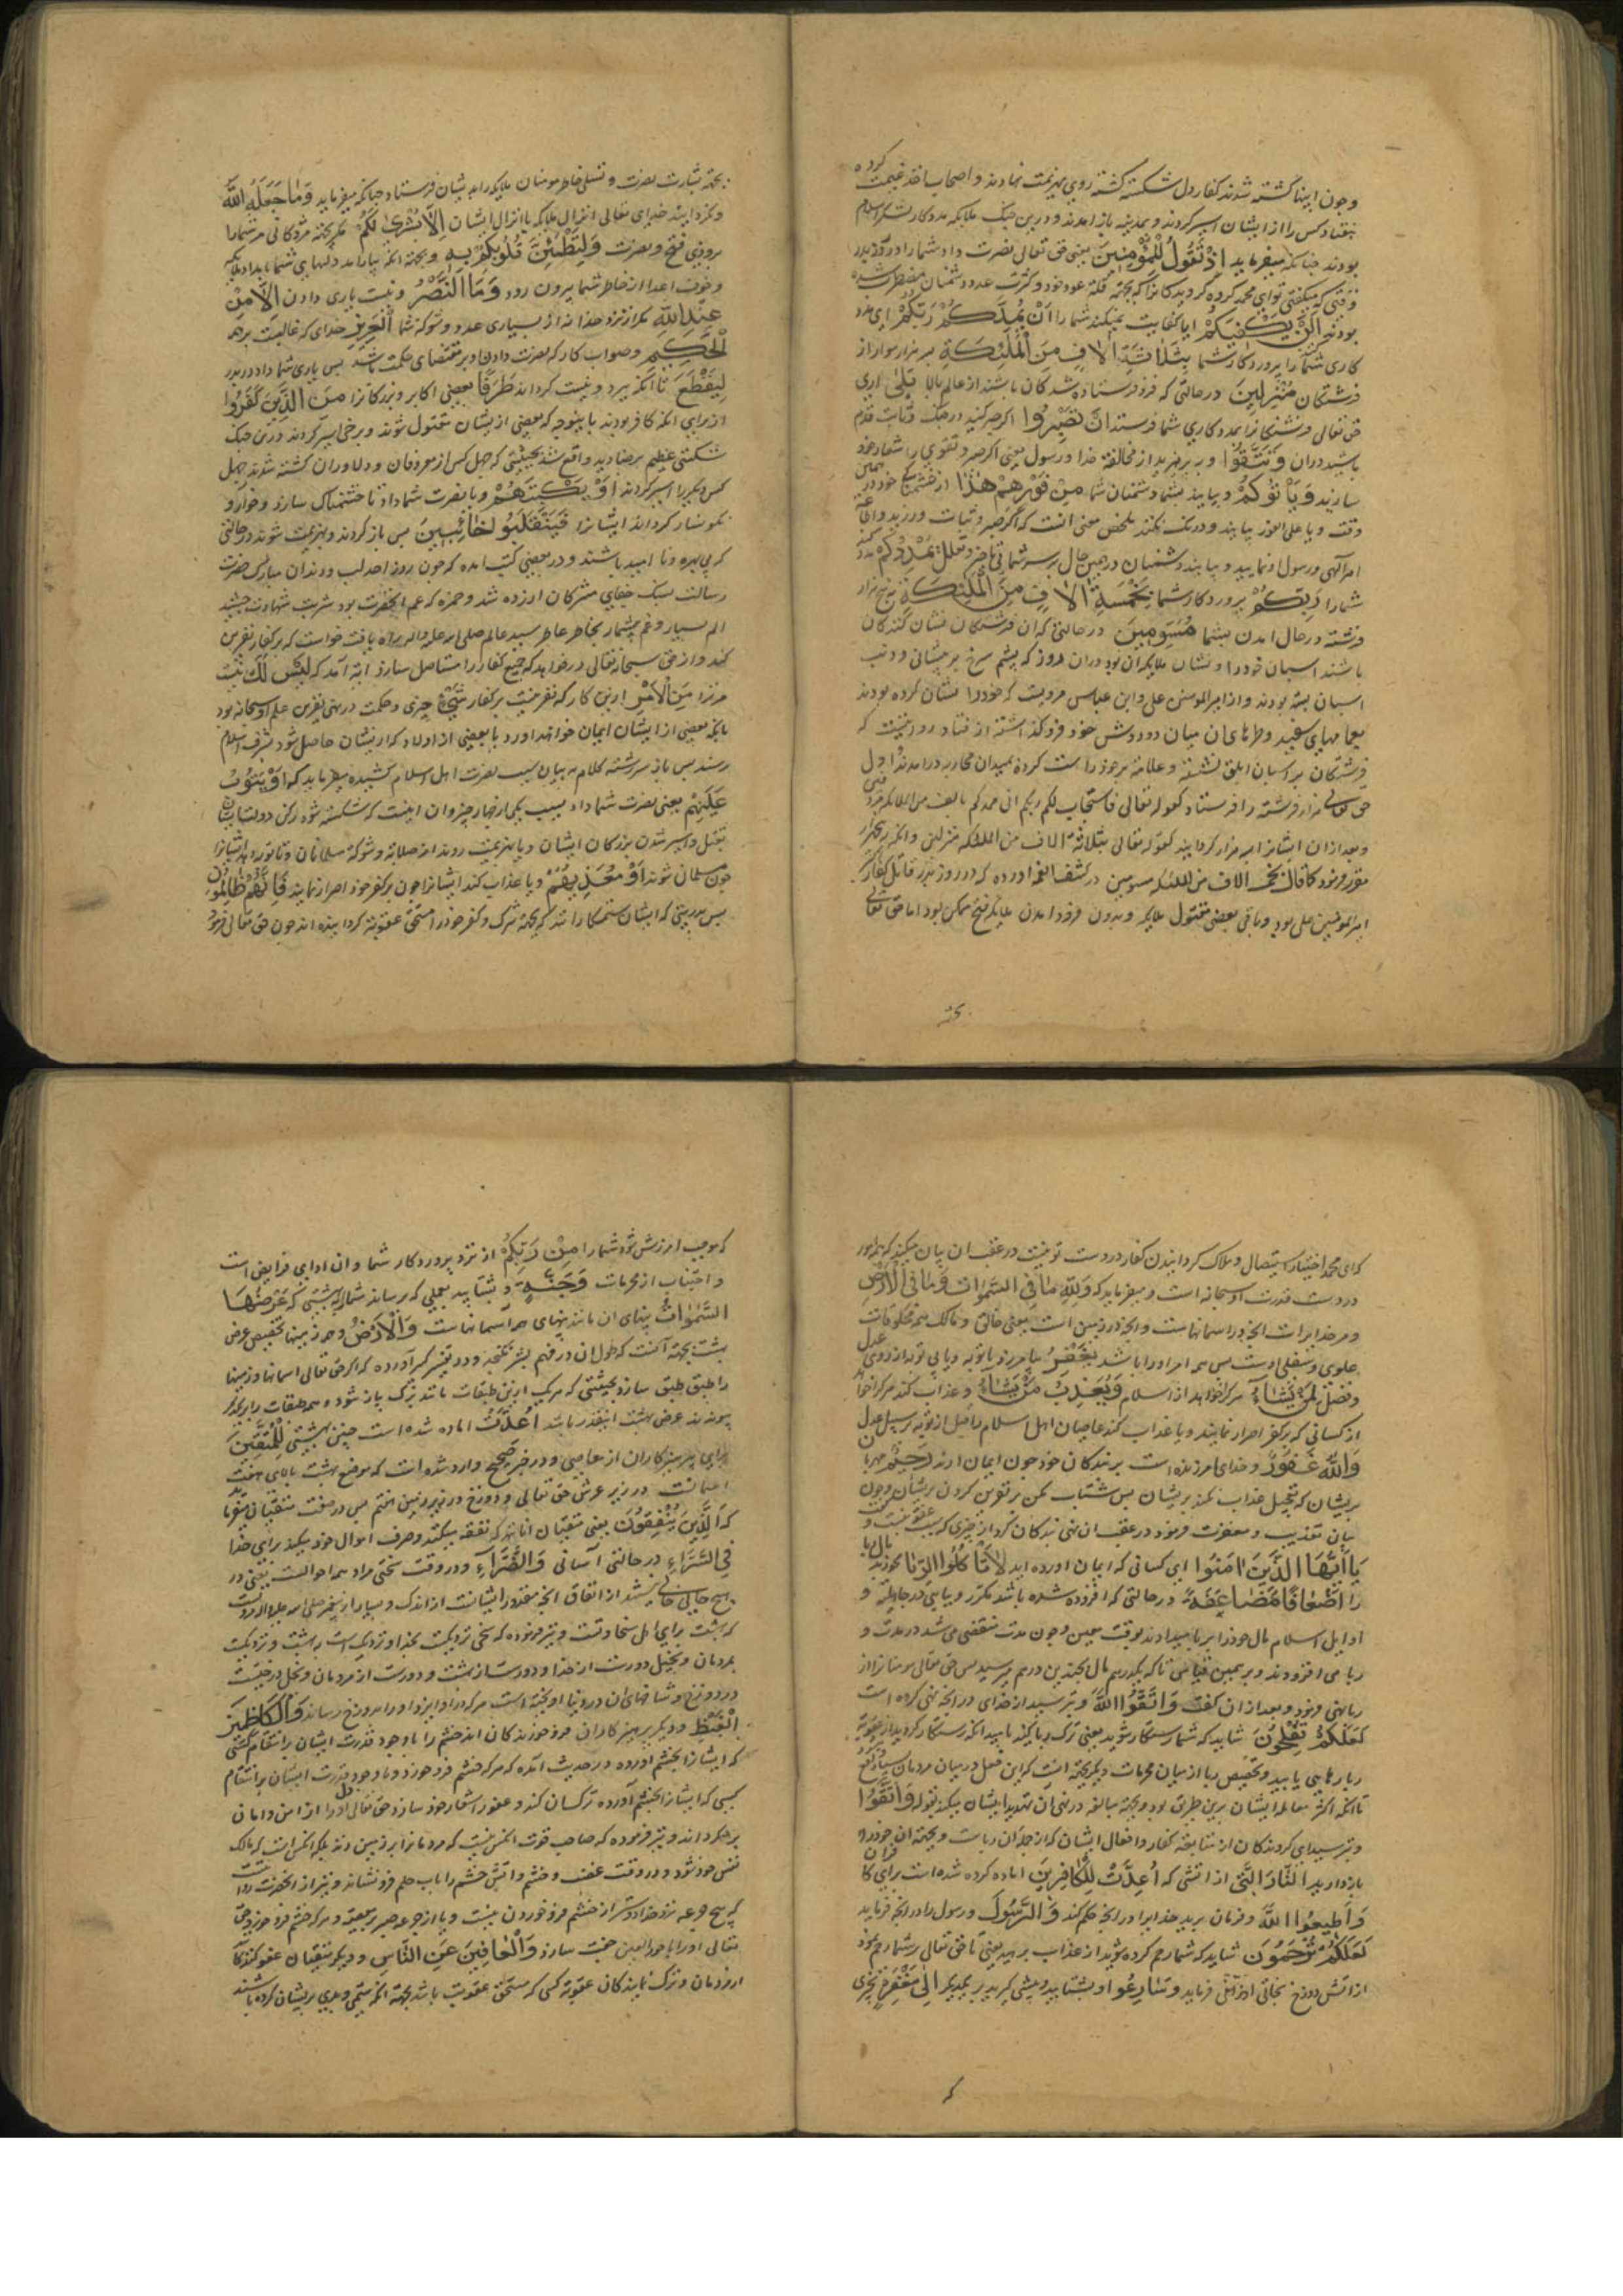 وچون اینها کشته شدند کفار دل شکسته کشته روی بهزیمت نهادند و اصحاب اخذ غنیمت کرده
هفتاد کس را از ایشان اسیر کردند و بمدینه باز امدند و درین جنک ملایکه مددکار لشکر اسلام
بودند چنانکه میفرماید اِذْ تَقُولُ لِلْمُؤْمِنِينَ یعنی حق تعالی نصرت داد شمارا در روز بدر
وقتی که میکفتی تو ای محمد کروه کرویدکانرا که بجهة قلة عدد خود و کثرت عدد دشمنان مضطر شده
بودند اَلَنْ يَكْفِيَكُمْ ایا کفایت نمیکند شمارا اَنْ يُمِدَّكُمْ رَبُّكُمْ
کاری شمارا پروردکار شما بِثَلٰثَةِ اٰلَافٍ مِنَ الْمَلٰئِكَةِ بسه هزار سوار از
فرشتکان مُنْزَلِينَ در حالتی که فرو فرستاده شدکان باشند از عالم بالا بَلٰی اری
حق تعالی فرشتکانرا بمددکاری شما فرستد اِنْ تَصْبِرُوا اکر صبر کنید در جنک و ثابت قدم
باشید دران وَتَتَّقُوا و بپرهیزید از مخالفة خدا و رسول یعنی اکر صبر و تقوی را شعار خود
سازید وَيَأْتُوكُمْ و بیایند بشما دشمنان شما مِنْ فَوْرِهِمْ هٰذَا
وقت و یا علی الفور بیایند و درنک نکنند ملخص معنی انست که اکر صبر و ثبات ورزید و اطاعة
امر الهی و رسول او نمایید و بیایند دشمنان در همین حال بر سر شما بی تاخر و تعلل يُمْدِدْكُمْ
شمارا رَبُّكُمْ پروردکار شما بِخَمْسَةِ اٰلَافٍ مِنَ الْمَلٰئِكَةِ به پنج هزار
فرشته در حال امدن بشما مُسَوِّمِينَ در حالتی که ان فرشتکان نشان کنندکان
باشند اسبان خود را و نشان ملایکه ان بود دران روز که پشم سرخ بر پیشانی و دنب
اسبان بسته بودند و از امیرالمومنین علی و ابن عباس مرویست که خود را نشان کرده بودند
بعمامهای سفید و طرهای ان میان دو دوش خود فرو کذاشته از قتاده روایتست که
فرشتکان بر اسبان ابلق نشسته و علامة بر خود راست کرده بمیدان محاربه درامدند اول
حق تعالی هزار فرشته را فرستاد کقوله تعالی فاستجاب لکم ربکم انی ممدکم بالف من الملایکة مردفین
و بعد ازان ایشانرا سه هزار کردانید کقوله تعالی بثلاثة الاف من الملئکه منزلین وانکه به پنجهزار
مقرر فرمود کما قال بخمسة الاف من الملئکه مسومین در کشف الغمه اورده که در روز بدر قاتل کفار
امیر المومنین علی بود و باقی بعضی مقتول ملایکه و بدون فرود امدن ملایکه فتح ممکن بود اما حق تعالی
بجهة
بجهة بشارت نصرت و تسلی خاطر مومنان ملایکه را بدیشان فرستاد چنانکه میفرماید وَمَا جَعَلَهُ اللّٰهُ
ونکردانید خدای تعالی انزال ملایکه یا انزال ایشان اِلَّا بُشْرٰی لَكُمْ مکر بجهة مژدکانی مر شمارا
بروزی فتح و نصرت وَلِتَطْمَئِنَّ قُلُوبُكُمْ بِهِ و بجهة انکه بیارامد دلهای شما بامداد ملایکه
و خوف اعدا از خاطر شما بیرون رود وَمَا النَّصْرُ و نیست یاری دادن اِلَّا مِنْ
عِنْدِ اللّٰهِ مکر از نزد خدا نه از بسیاری عدد و شوکة شما الْعَزِيزِ خدای که غالبست بر همه
الْحَكِيمِ وصواب کار که نصرت دادن او بر مقتضای حکمت باشد پس یاری شما داد در بدر
لِيَقْطَعَ تا انکه ببرد و نیست کرداند طَرَفًا بعضی اکابر و بزرکانرا مِنَ الَّذِينَ كَفَرُوا
از برای انکه کافر بودند باینوجه که بعضی از یشان مقتول شوند و برخی اسیر کردند درین جنک
شکستی عظیم بر صنادید واقع شد بحیثیتی که چهل کس از معروفان و دلاوران کشته شدند چهل
کس دیکر را اسیر کردند اَوْ يَكْبِتَهُمْ و یا نصرت شما داد تا خشمناک سازد و خوار و
نکونسار کرداند ایشانرا فَيَنْقَلِبُوا خَائِبِينَ پس باز کردند و بهزیمت شوند در حالتی
که بی بهره و نا امید باشند و در بعضی کتب امده که چون روز احد لب و دندان مبارک حضرت
رسالت بسنک جفای مشرکان ازرده شد و حمزه که عم انحضرت بود شربت شهادت چشید
الم بسیار و غم بیشمار بخاطر عاطر سید عالم صلی الله علیه واله راه یافت خواست که بر کفار نفرین
کند و از حق سبحانه تعالی درخواهد که جمیع کفار را مستاصل سازد ایة آمد که لَيْسَ لَكَ نیست
مر ترا مِنَ الْاَمْرِ ازین کار که نفرینست بر کفار شَيْءٌ چیزی و حکمت در نهی نفرین علم او سبحانه بود
بانکه بعضی از ایشان ایمان خواهند اورد یا بعضی از اولاد کبار ایشان حاصل شود بشرف اسلام
رسند پس باز سررشته کلام به بیان سبب نصرت اهل اسلام کشیده میفرماید که اَوْ يَتُوبَ
عَلَيْهِمْ یعنی نصرت شما داد بسبب یکی از چهار چیز و ان اینست که شکسته شود رکن دولت ایشان
بقتل و اسیر شدن بزرکان ایشان و یا بهزیمت روند از صلابة و شوکة مسلمانان و یا توبه دهد ایشانرا
چون مسلمان شوند اَوْ يُعَذِّبَهُمْ و یا عذاب کند ایشانرا چون بر کفر خود اصرار نمایند فَاِنَّهُمْ ظَالِمُونَ
پس بدرستی که ایشان ستمکارانند که بجهة شرک و کفر خود را مستحق عقوبة کردانیده اند چون حق تعالی فرمود
که ای محمد اختیار استیصال و هلاک کردانیدن کفار در دست تو نیست در عقب ان بیان میکند که همه امور
در دست قدرت او سبحانه است و میفرماید که وَلِلّٰهِ مَا فِي السَّمٰوَاتِ وَمَا فِي الْاَرْضِ
و مر خدایراست انچه در اسمانهاست و انچه در زمین است یعنی خالق و مالک همه مخلوقات
علوی و سفلی اوست پس همه امر او را باشد يَغْفِرُ بیامرزد با توبه و یا بی توبه از روی عدل
و فضل لِمَنْ يَشَاءُ هر کرا خواهد از اسلام وَيُعَذِّبُ مَنْ يَشَاءُ و عذاب کند هر کرا خواهد
از کسانی که بر کفر اصرار نمایند و یا عذاب کند عاصیان اهل اسلام را قبل از توبه بر سبیل عدل
وَاللّٰهُ غَفُورٌ و خدای امرزنده است بر بندکان خود چون ایمان ارند رَحِيمٌ مهربان
بریشان که تعجیل عذاب نکند بریشان پس شتاب مکن بر نفرین کردن بریشان و چون
بیان تعذیب و مغفرت فرمود در عقب ان نهی بندکان کرد از چیزی که سبب عقوبتست و
يَا اَيُّهَا الَّذِينَ اٰمَنُوا ای کسانی که ایمان اورده اید لَا تَأْكُلُوا الرِّبٰوا مخورید مال ربا
را اَضْعَافًا مُضَاعَفَةً در حالتی که افزوده شده باشد مکرر و پیاپی در جاهلیة و
اوایل اسلام مال خود را بربا میدادند بوقت معین و چون مدت منقضی می شد در مدت و
ربا می افزودند و بر همین قیاس تا که یکدرهم مال بچندین درهم میرسید پس حق تعالی مومنانرا از
ربا نهی فرمود و بعد ازان کفت وَاتَّقُوا اللّٰهَ و بترسید از خدای در انچه نهی کرده است
لَعَلَّكُمْ تُفْلِحُونَ شاید که شما رستکار شوید یعنی ترک ربا کنید بامید انکه رستکار کردید از عقوبة
ربا رهایی یابید و تخصیص ربا از میان محرمات دیکر بجهة انست که این فعل در میان مردمان بسیار واقع
تا انکه اکثر معامله ایشان برین طریق بود و بجهة مبالغه در نهی ان تهدید ایشان میکند بقوله وَاتَّقُوا
و بترسید ای کروندکان از متابعة کفار و افعال ایشان که از جمله ان رباست و بجهة ان خود را
باز دارید النَّارَ الَّتِي از اتشی که اُعِدَّتْ لِلْكَافِرِينَ اماده کرده شده است برای کافران
وَاَطِيعُوا اللّٰهَ و فرمان برید خدایرا در انچه حکم کند وَالرَّسُولَ و رسول را در انچه فرماید
لَعَلَّكُمْ تُرْحَمُونَ شاید که شما رحم کرده شوید از عذاب برهید یعنی تا حق تعالی بر شما رحم نموده
از اتش دوزخ نجاتی ارزانی فرماید وَسَارِعُوا و بشتابید و پیشی کیرید بر یکدیکر اِلٰى مَغْفِرَةٍ بچیزی
که
که موجب امرزش شود شمارا مِنْ رَبِّكُمْ از نزد پروردکار شما و ان ادای فرایض است
و اجتناب از محرمات وَجَنَّةٍ و بشتابید بعملی که برساند شمارا به بهشتی که عَرْضُهَا
السَّمٰوَاتُ پهنای ان مانند پهنای همه اسمانهاست وَالْاَرْضُ و همه زمینها تخصیص عرض
بهشت بجهة آنست که طول ان در فهم بشر نکنجد و در تفسیر کبیر آورده که اکر حق تعالی اسمانها و زمینها
را طبق طبق سازد بحیثیتی که هر یک ازین طبقات مانند ترک پیاز شود و همه طبقات را بر یکدیکر
پیوندند عرض بهشت اینقدر باشد اُعِدَّتْ اماده شده است چنین بهشتی لِلْمُتَّقِينَ
برای پرهیزکاران از معاصی و در خبر صحیح وارد شده است که موضع بهشت بالای هفت
اسمانست در زیر عرش حق تعالی و دوزخ در زیر زمین هفتم پس در صفت متقیان میفرماید
که اَلَّذِينَ يُنْفِقُونَ یعنی متقیان انانند که نفقه میکنند و صرف اموال خود میکنند برای خدا
فِي السَّرَّاءِ در حالتی آسانی وَالضَّرَّاءِ و در وقت سختی مراد همه احوالست یعنی در
هیچ حالی خالی نباشند از انفاق انچه مقدور ایشانست از اندک و بسیار از پیغمبر صلی الله علیه واله مرویست
که بهشت برای اهل سخاوتست و نیز فرموده که سخی نزدیکست بخدا و نزدیک است به بهشت و نزدیکست
بمردمان و بخیل دورست از خدا و دورست از بهشت و دورست از مردمان و بخل درختیست
در دوزخ و شاخهای ان در دنیا اویخته است هر که دران اویزد او را بدوزخ رساند وَالْكَاظِمِينَ
الْغَيْظَ و دیکر پرهیزکاران فرو خورندکان اند خشم را با وجود قدرت ایشان بر انتقام کسی
که ایشانرا بخشم اورده و در حدیث آمده که هر که خشم فرو خورد و با وجود قدرت ایشان بر انتقام
کسی که ایشانرا بخشم آورده ترک ان کند و عفو را شعار خود سازد حق تعالی دل او را از امن و امان
پر کرداند و نیز فرموده که صاحب قوت انکس نیست که مردمانرا بر زمین زند بلکه انکس است که مالک
نفس خود شود و در وقت غضب و خشم و اتش خشم را باب حلم فرو نشاند و نیز از انحضرت روایتست
که هیچ جرعه نزد خدا دوستر از خشم فرو خوردن نیست و یا از جرعه صبر بر مصیبة و هر که خشم فرو خورد حق
تعالی او را با حورالعین جفت سازد وَالْعَافِينَ عَنِ النَّاسِ و دیکر متقیان عفو کنندکان
از مردمان و ترک نمایندکان عقوبة کسی که مستحق عقوبت باشد بجهة انکه ستمی و بدی بریشان کرده باشند